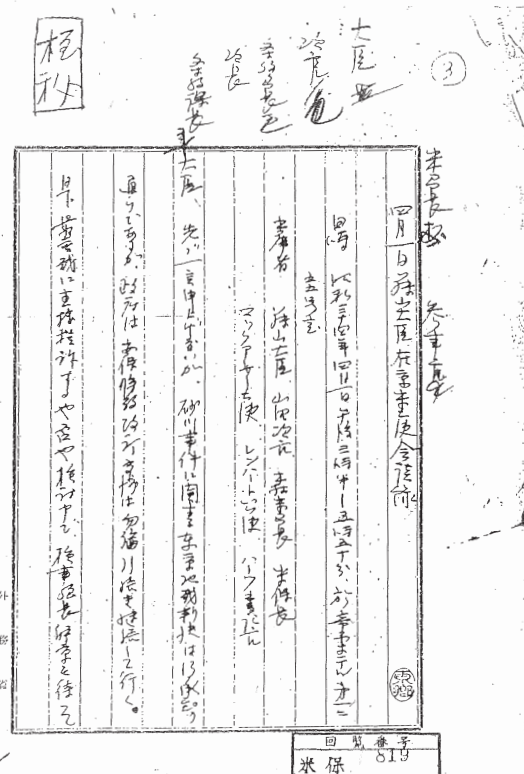 極秘
③
大臣
次官
条約局長
次長
条約課長
米局長 参事官
四月一日藤山大臣在京米大使会談録
日時 昭和三十四年四月一日午後三時半―五時五十分、於帝国ホテル
五号室
出席者 藤山大臣、山田次官、森米局長 米保長
マックアーサー大使 レンハート公使 ハーツ書記官
大臣、先ず一言申上げたいが、砂川事件に関する東京地裁判決は御承知の
通りであるが、政府は安保条約改訂交渉は勿論引続き継続して行く。
目下最高裁に直接控訴するや否や検討中で、検事総長帰京を待って
外務省
回覧番号
米保 819